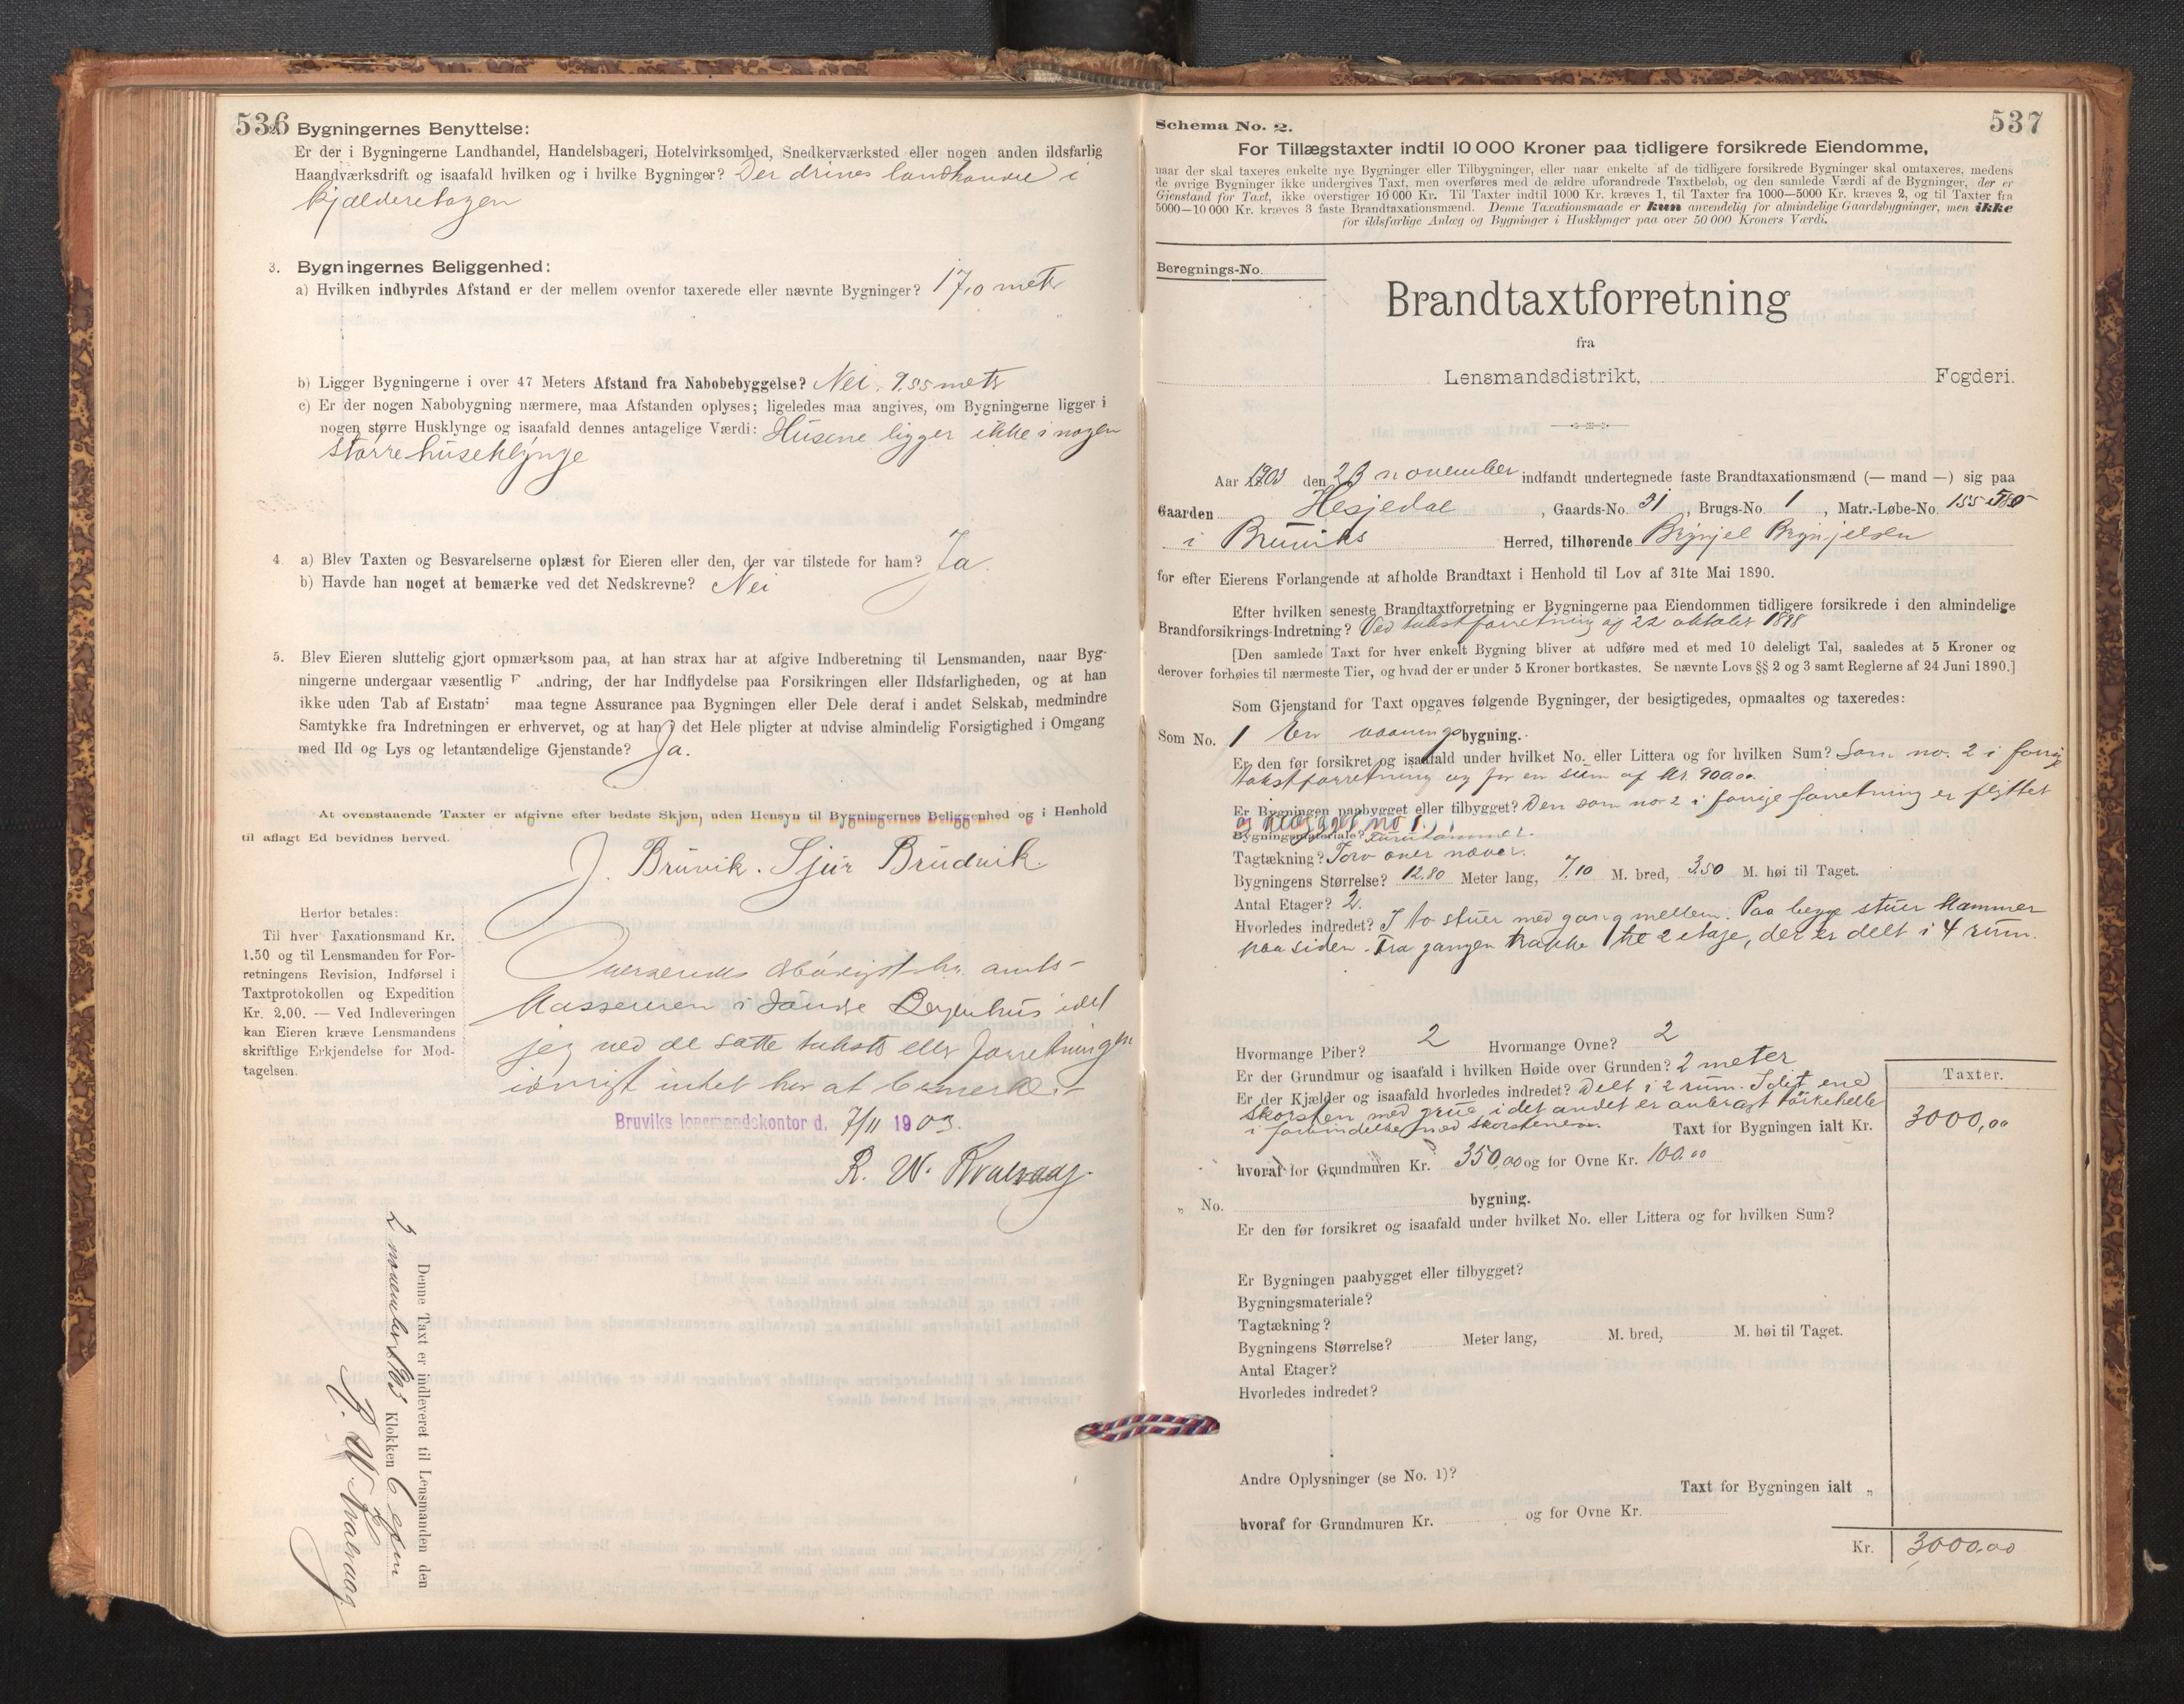 536
Bygningernes Benyttelse:
Er der i Bygningerne Landhandel, Handelsbageri, Hotelvirksomhed, Snedkerværksted eller nogen anden ildsfarlig
Haandværksdrift og isaafald hvilken og i hvilke Bygninger? Der drives landhandel i
kjælderetagen
3. Bygningernes Beliggenhed:
a) Hvilken indbyrdes Afstand er der mellem ovenfor taxerede eller nævnte Bygninger? 17,0 meter
b) Ligger Bygningerne i over 47 Meters Afstand fra Nabobebyggelse? Nei. 9.55 meter
c) Er der nogen Nabobygning nærmere, maa Afstanden oplyses; ligeledes maa angives, om Bygningerne ligger i
nogen større Husklynge og isaafald dennes antagelige Værdi: Husene ligger ikke i nogen
større huseklynge
4. a) Blev Taxten og Besvarelserne oplæst for Eieren eller den, der var tilstede for ham? Ja.
b) Havde han noget at bemærke ved det Nedskrevne? Nei
5. Blev Eieren sluttelig gjort opmærksom paa, at han strax har at afgive Indberetning til Lensmanden, naar Byg-
ningerne undergaar væsentlig F andring, der har Indflydelse paa Forsikringen eller Ildsfarligheden, og at han
ikke uden Tab af Erstatn maa tegne Assurance paa Bygningen eller Dele deraf i andet Selskab, medmindre
Samtykke fra Indretningen er erhvervet, og at han i det Hele pligter at udvise almindelig Forsigtighed i Omgang
med Ild og Lys og letantændelige Gjenstande? Ja.
At ovenstaaende Taxter er afgivne efter bedste Skjøn, uden Hensyn til Bygningernes Beliggenhed og i Henhold
til aflagt Ed bevidnes herved.
J. Bruvik. Sjur Brudvik
Herfor betales:
Til hver Taxationsmand Kr.
1.50 og til Lensmanden for For-
retningens Revision, Indførsel i
Taxtprotokollen og Expedition
Kr. 2.00. — Ved Indleveringen
kan Eieren kræve Lensmandens
skriftlige Erkjendelse for Mod-
tagelsen.
Oversendes amts-
kassereren i Søndre Bergenhus idet
jeg ved de satte takster eller forretningen
iøvrigt intet har at bemerke.
Bruviks lensmandskontor d. 7/11 1903.
R. W. Kvalvaag
Denne Taxt er indleveret til Lensmanden den
2 november 1903 Klokken 6 eftm
R. W. Kvalvaag
537
Schema No. 2.
For Tillægstaxter indtil 10 000 Kroner paa tidligere forsikrede Eiendomme,
naar der skal taxeres enkelte nye Bygninger eller Tilbygninger, eller naar enkelte af de tidligere forsikrede Bygninger skal omtaxeres, medens
de øvrige Bygninger ikke undergives Taxt, men overføres med de ældre uforandrede Taxtbeløb, og den samlede Værdi af de Bygninger, der er
Gjenstand for Taxt, ikke overstiger 10 000 Kr. Til Taxter indtil 1000 Kr. kræves 1, til Taxter fra 1000—5000 Kr. kræves 2, og til Taxter fra
5000—10 000 Kr. kræves 3 faste Brandtaxationsmænd. Denne Taxationsmaade er kun anvendelig for almindelige Gaardsbygninger, men ikke
for ildsfarlige Anlæg og Bygninger i Husklynger paa over 50 000 Kroners Værdi.
Beregnings-No.
Brandtaxtforretning
fra
Lensmandsdistrikt, Fogderi.
Aar 1903 den 23 november indfandt undertegnede faste Brandtaxationsmænd (— mand —) sig paa
Gaarden Hesjedal, Gaards-No. 31, Brugs-No. 1, Matr.-Løbe-No. 155
i Bruviks Herred, tilhørende Brynjel Brynjelsen
for efter Eierens Forlangende at afholde Brandtaxt i Henhold til Lov af 31te Mai 1890.
Efter hvilken seneste Brandtaxtforretning er Bygningerne paa Eiendommen tidligere forsikrede i den almindelige
Brandforsikrings-Indretning? Ved takstforretning af 22 oktober 1898
[Den samlede Taxt for hver enkelt Bygning bliver at udføre med et med 10 deleligt Tal, saaledes at 5 Kroner og
derover forhøies til nærmeste Tier, og hvad der er under 5 Kroner bortkastes. Se nævnte Lovs §§ 2 og 3 samt Reglerne af 24 Juni 1890.]
Som Gjenstand for Taxt opgaves følgende Bygninger, der besigtigedes, opmaaltes og taxeredes:
Som No. 1 En vaaningsbygning.
Er den før forsikret og isaafald under hvilket No. eller Littera og for hvilken Sum? Som no. 2 i forrige
takstforretning og for en sum af kr. 900.00.
Er Bygningen paabygget eller tilbygget? Den som no 2 i forrige forretning er flyttet
og no 1.
Bygningsmateriale? Furutømmer.
Tagtækning? Torv over næver.
Bygningens Størrelse? 12.80 Meter lang, 7.10 M. bred, 3.50 M. høi til Taget.
Antal Etager? 2.
Hvorledes indredet? I to stuer med gang mellem. Paa begge stuer kammer
paa siden. Fra gangen trappe til 2 etage, der er delt i 4 rum.
Hvormange Piber? 2 Hvormange Ovne? 2
Er der Grundmur og isaafald i hvilken Høide over Grunden? 2 meter
Er der Kjælder og isaafald hvorledes indredet? Delt i 2 rum. I det ene
skorsten med grue, i det andet er anbragt tørkehelle
i forbindelse med skorstenen.
Taxter.
Taxt for Bygningen ialt Kr. 3000,00
hvoraf for Grundmuren Kr. 350,00 og for Ovne Kr. 100.00
„ No. bygning.
Er den før forsikret og isaafald under hvilket No. eller Littera og for hvilken Sum?
Er Bygningen paabygget eller tilbygget?
Bygningsmateriale?
Tagtækning?
Bygningens Størrelse? Meter lang, M. bred, M. høi til Taget.
Antal Etager?
Hvorledes indredet?
Andre Oplysninger (se No. 1)?
Taxt for Bygningen ialt „
hvoraf for Grundmuren Kr. og for Ovne Kr.
Kr. 3000.00